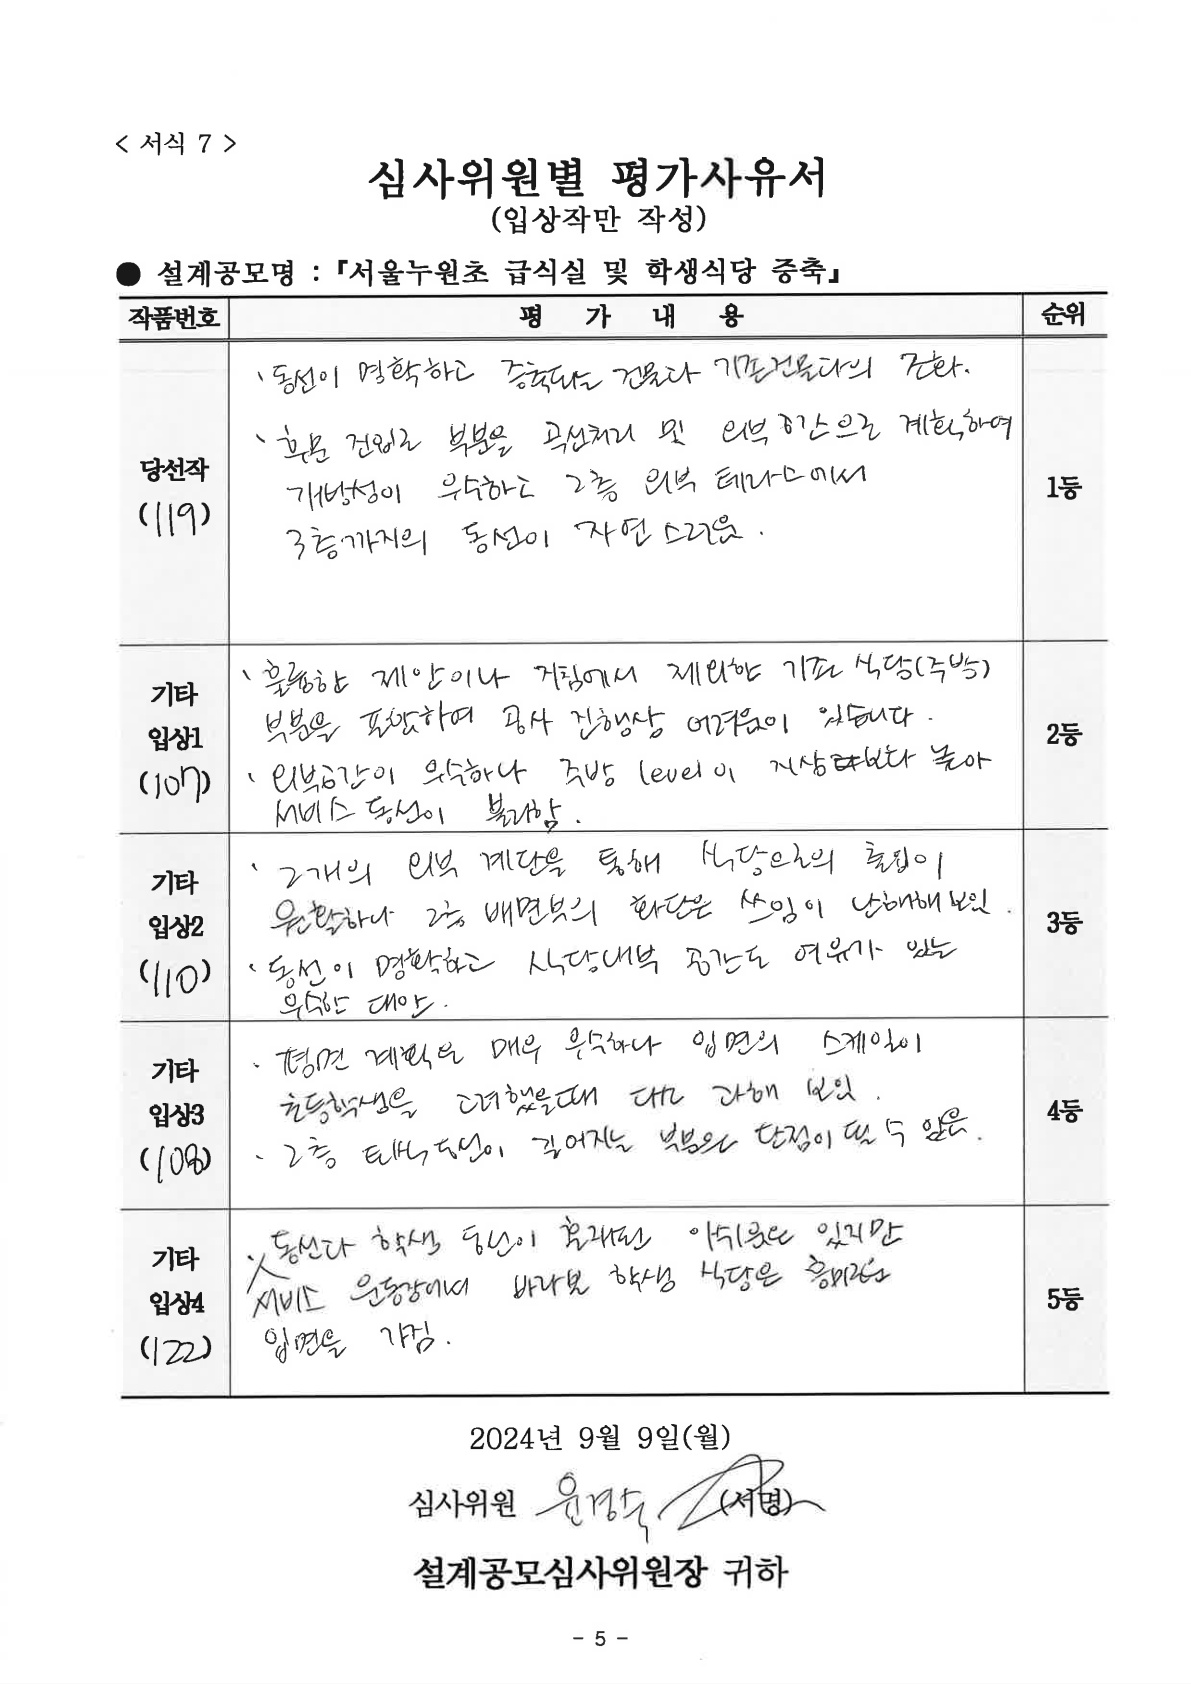 < 서식 7 >
심사위원별 평가사유서
(입상작만 작성)
● 설계공모명 : 『서울누원초 급식실 및 학생식당 증축』
작품번호 평 가 내 용 순위
당선작
(119)
、동선이 명확하고 증축되는 건물과 기존건물과의 조화.
、후문 진입로 부분을 곡선처리 및 외부 공간으로 계획하여
개방성이 우수하고 2층 외부 테라스에서
3층까지의 동선이 자연스러움.
1등
기타
입상1
(107)
、훌륭한 제안이나 지침에서 제외한 기존 식당(주방)
부분을 포함하여 공사 진행상 어려움이 있습니다.
、외부공간이 우수하나 주방 level이 지상 보다 높아
서비스 동선이 불리함.
2등
기타
입상2
(110)
、2개의 외부 계단을 통해 식당으로의 출입이
원활하나 2층 배면부의 화단은 쓰임이 난해해 보임.
、동선이 명확하고 식당내부 공간도 여유가 있는
우수한 대안.
3등
기타
입상3
(108)
、평면 계획은 매우 우수하나 입면의 스케일이
초등학생을 고려했을때 다소 과해 보임.
、2층 동선이 길어지는 부분은 단점이 될 수 있음.
4등
기타
입상4
(122)
、서비스 동선과 학생 동선이 아쉬움은 있지만
운동장에서 바라본 학생 식당은 흥미로운
입면을 가짐.
5등
2024년 9월 9일(월)
심사위원 윤경숙 (서명)
설계공모심사위원장 귀하
- 5 -